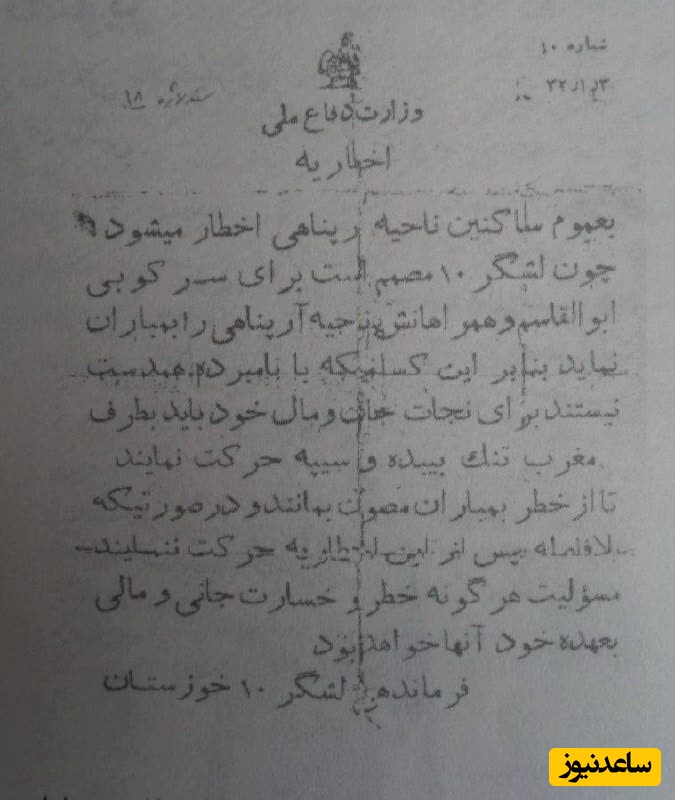 شماره ۱۰
سند لاژه ۱۸
وزارت دفاع ملی
اخطاریه
بعموم ساکنین ناحیه رپناهی اخطار میشود
چون لشگر ۱۰ مصمم است برای سر کوبی
ابوالقاسم و همراهانش ناحیه آرپناهی را بمباران
نماید بنابر این کسانیکه با نامبرده همدست
نیستند برای نجات جان و مال خود باید بطرف
مغرب تنك بیبده و سیپه حرکت نمایند
تا از خطر بمباران مصون بمانند و در صورتیکه
بلافاصله پس از این اخطاریه حرکت ننمایند
مسؤلیت هر گونه خطر و خسارت جانی و مالی
بعهده خود آنها خواهد بود
فرمانده لشگر ۱۰ خوزستان
ساعدنیوز